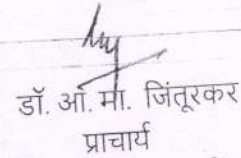 डॉ. ओ. मा. जिंतूरकर
प्राचार्य